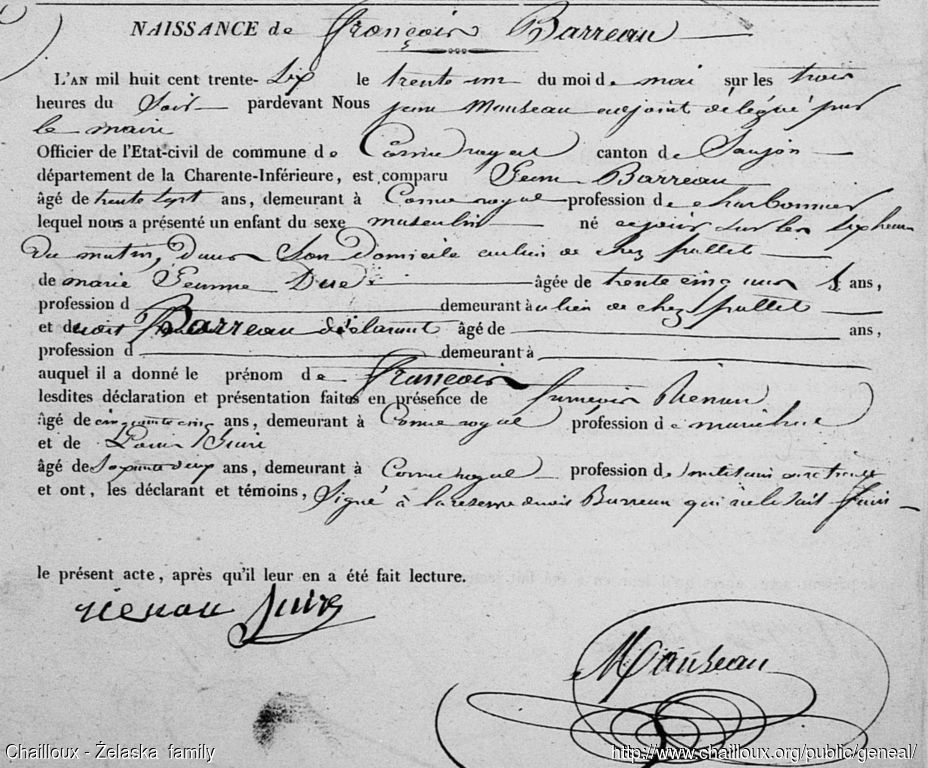 NAISSANCE de François Barreau
L'AN mil huit cent trente-six le trente un du moi de mai sur les trois
heures du soir pardevant Nous jean Mouseau adjoint délégué par
le maire
Officier de l'Etat-civil de commune de Corme royal canton de Saujon
département de la Charente-Inférieure, est comparu Jean Barreau
âgé de trente sept ans, demeurant à Corme royal profession de charbonnier
lequel nous a présenté un enfant du sexe masculin né ce jour sur les six heures
du matin, dans son domicile au lieu de chez pallet
de marie Jeanne âgée de trente cinq ans ans,
profession d demeurant à au lieu de chez pallet
et de Barreau déclarant âgé de ans,
profession d demeurant à
auquel il a donné le prénom de François
lesdites déclaration et présentation faites en présence de françois Renou
âgé de cinquante cinq ans, demeurant à Corme royal profession de
et de Louis
âgé de soixante deux ans, demeurant à Corme royal profession de
et ont, les déclarant et témoins, signé à la reserve Barreau qui ne le sait faire
le présent acte, après qu'il leur en a été fait lecture.
renou
Mouseau
Chailloux - Želaska family
http://www.chailloux.org/public/geneal/